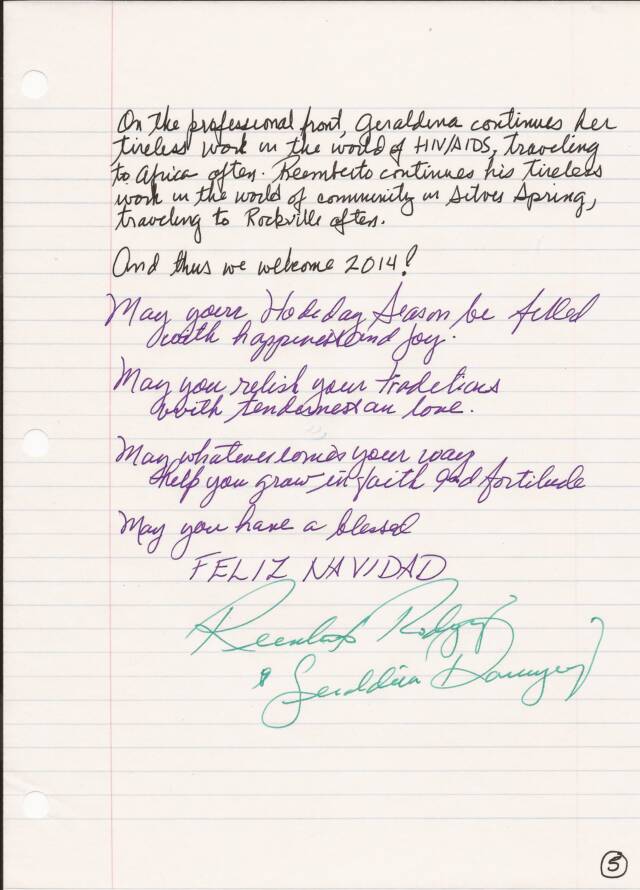 On the professional front, Geraldina continues her
tireless work in the world of HIV/AIDS, traveling
to Africa often. Reemberto continues his tireless
work in the world of community in Silver Spring,
traveling to Rockville often.
And thus we welcome 2014!
May your Holiday Season be filled
with happiness and joy.
May you relish your traditions
with tenderness an love.
May whatever comes your way
help you grow in faith and fortitude
May you have a blessed
FELIZ NAVIDAD
Reemberto
& Geraldina
5